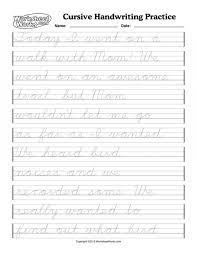 Worksheet Works .com
Cursive Handwriting Practice
Name: Date:
Today I went on a
walk with Mom! We
went on an awesome
trail but Mom
wouldn't let me go
as far as I wanted.
We heard bird
noises and we
recorded some. We
really wanted to
find out what bird